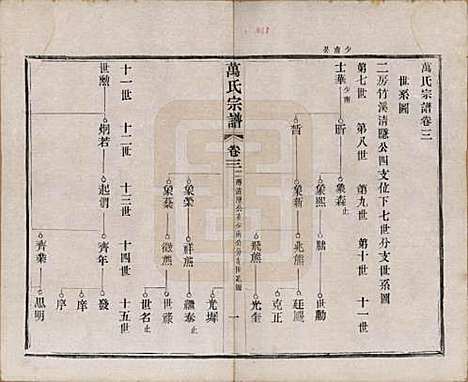 萬氏宗譜卷三
世系圖
二房竹溪清隱公四支位下七世分支世系圖
第七世 第八世 第九世 第十世 十一世
士華 少南
昕 象森 止
象熙 驌 世勳
晢 象新 兆熊 廷颺
克正
飛熊 光奎
萬氏宗譜 卷三 一
光墀
象榮 祥熊 繼泰 止
象蓁 徵熊 世祿
世名 止
十一世 十二世 十三世 十四世 十五世
世勲 炯若 起渭 齊年 發
序
序
齊業 思明